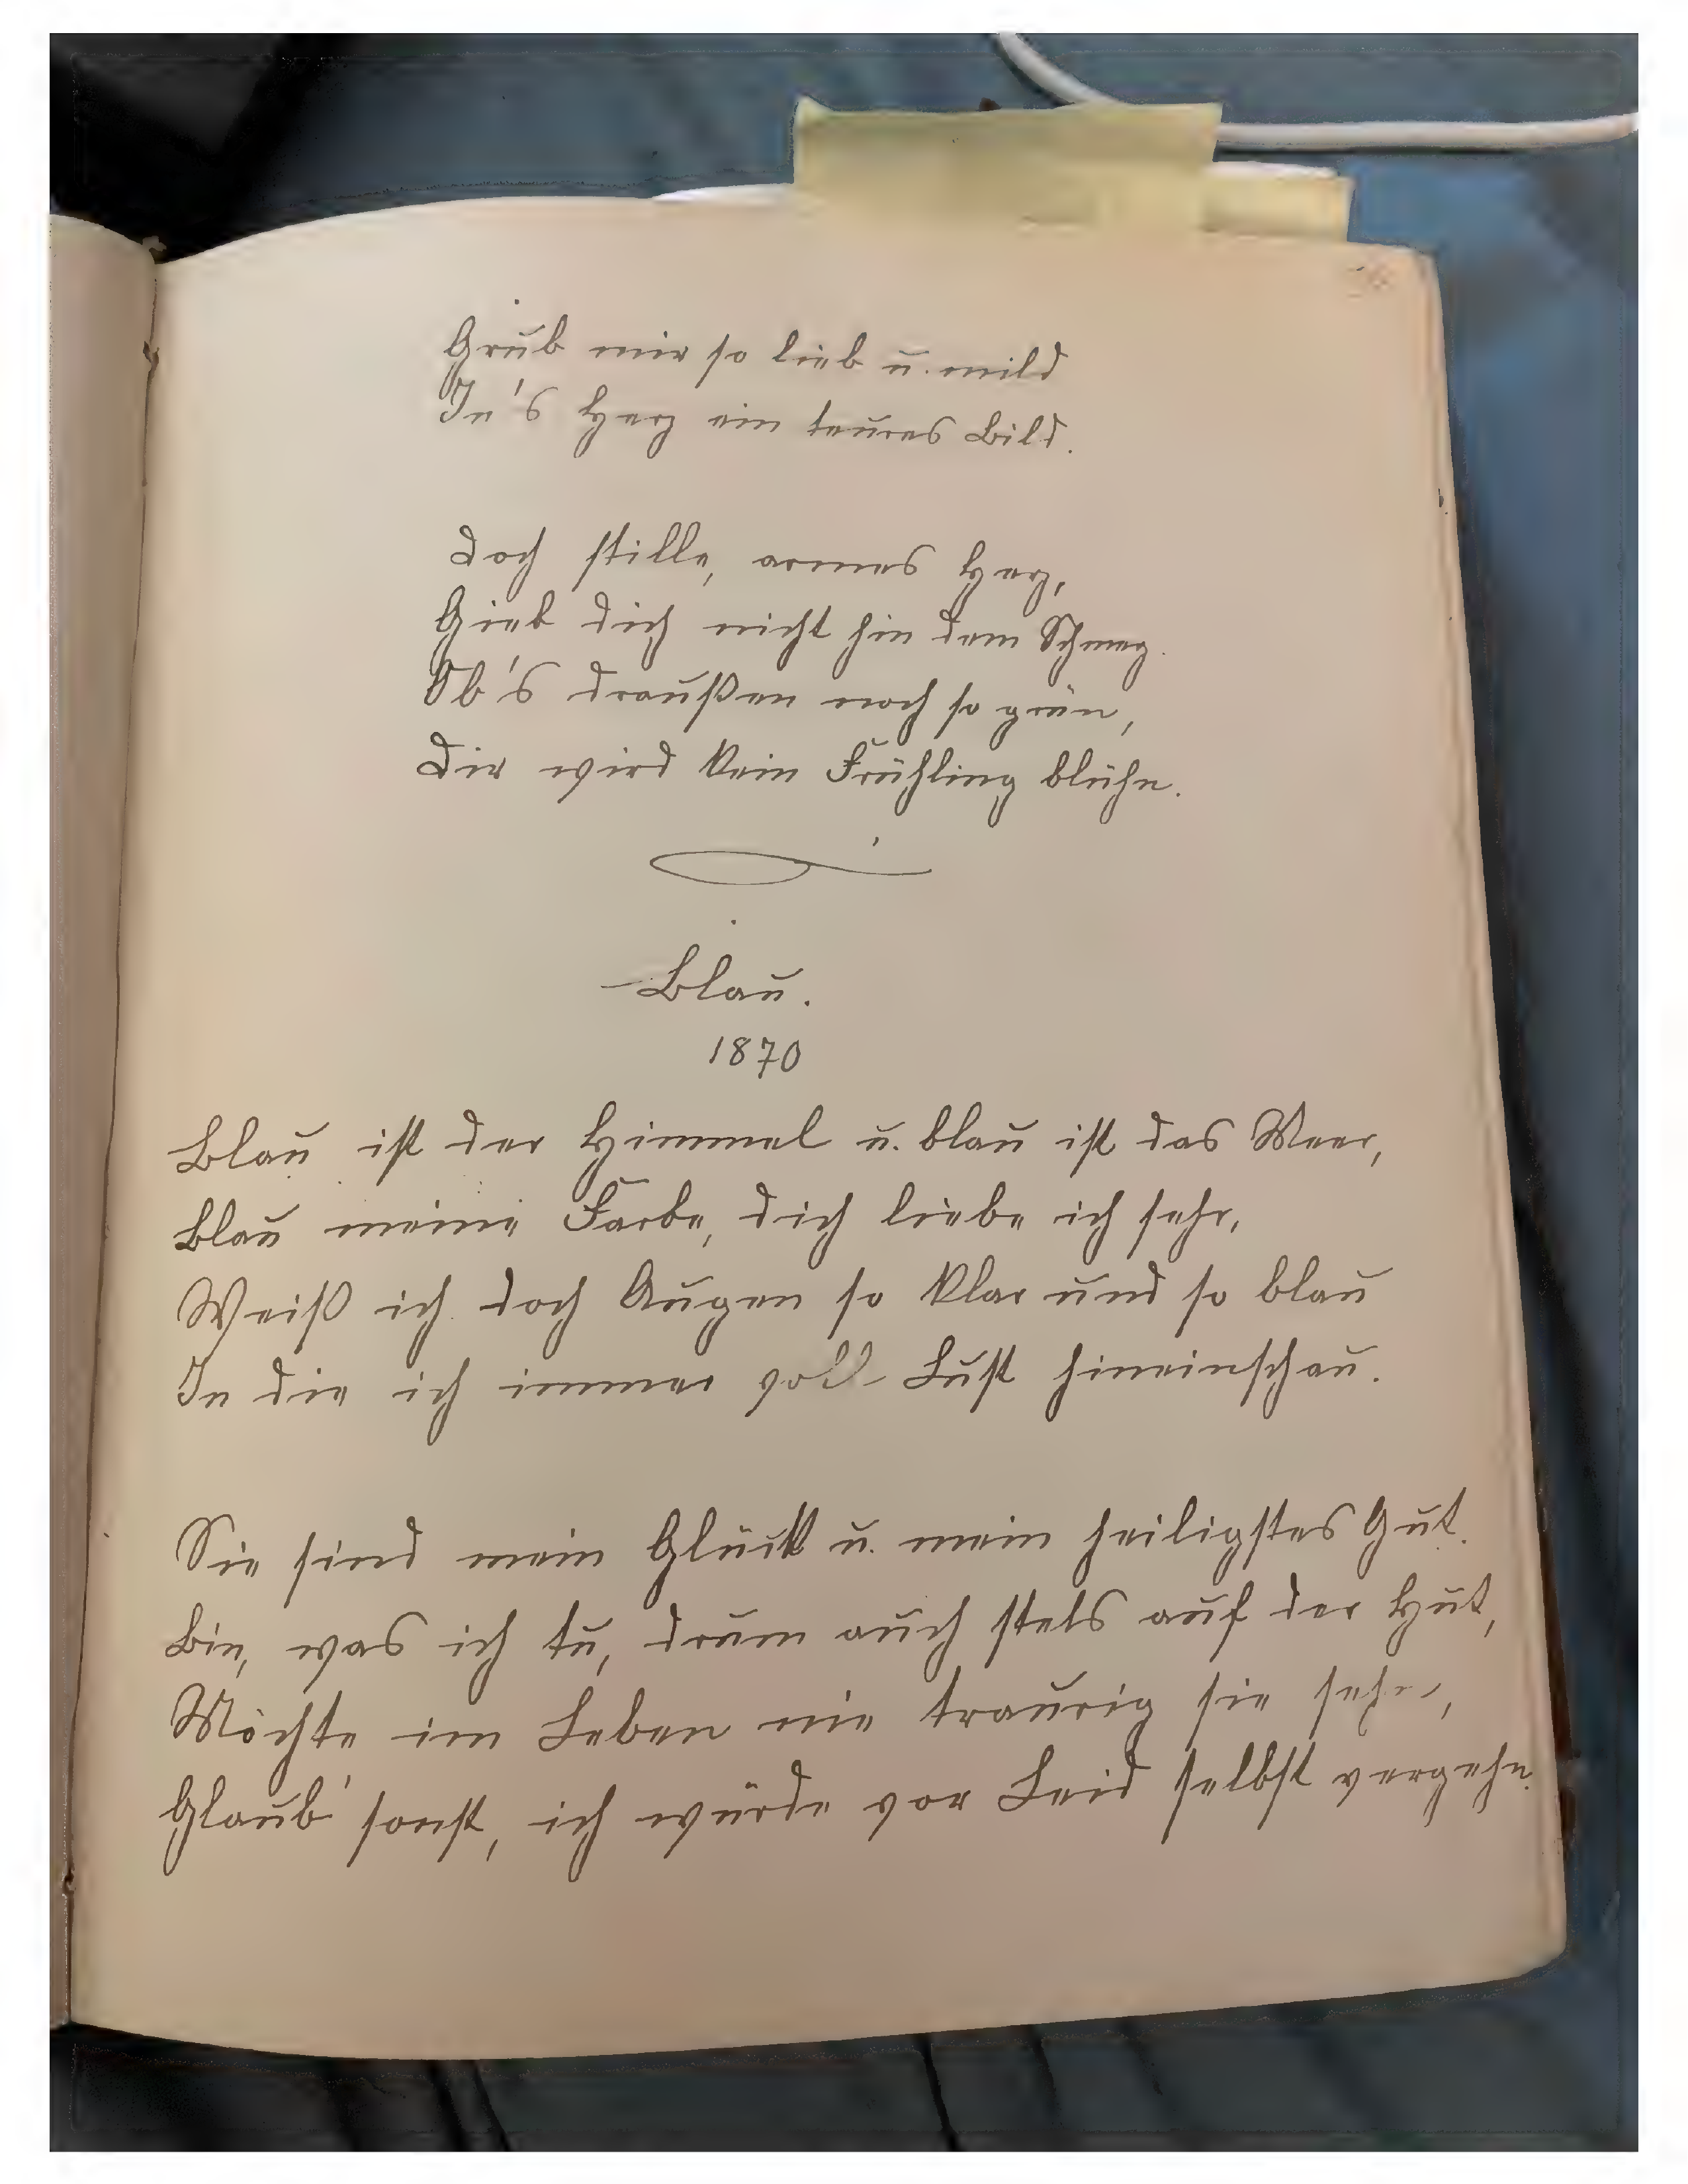 Grub mir so lieb u. mild
In's Herz ein teures Bild.
Doch stille, armes Herz,
Gieb dich nicht hin dem Schmerz.
Ob's draußen noch so grün,
Dir wird kein Frühling blühn.
Blau.
1870
Blau ist der Himmel u. blau ist das Meer,
Blau meine Farbe, dich liebe ich sehr,
Weiß ich doch Augen so klar und so blau
In die ich immer voll Lust hineinschau.
Sie sind mein Glück u. mein heiligstes Gut.
Bin, was ich tu, drum auch stets auf der Hut,
Möchte im Leben nie traurig sie sehn,
Glaub' sonst, ich würde vor Leid selbst vergehn.